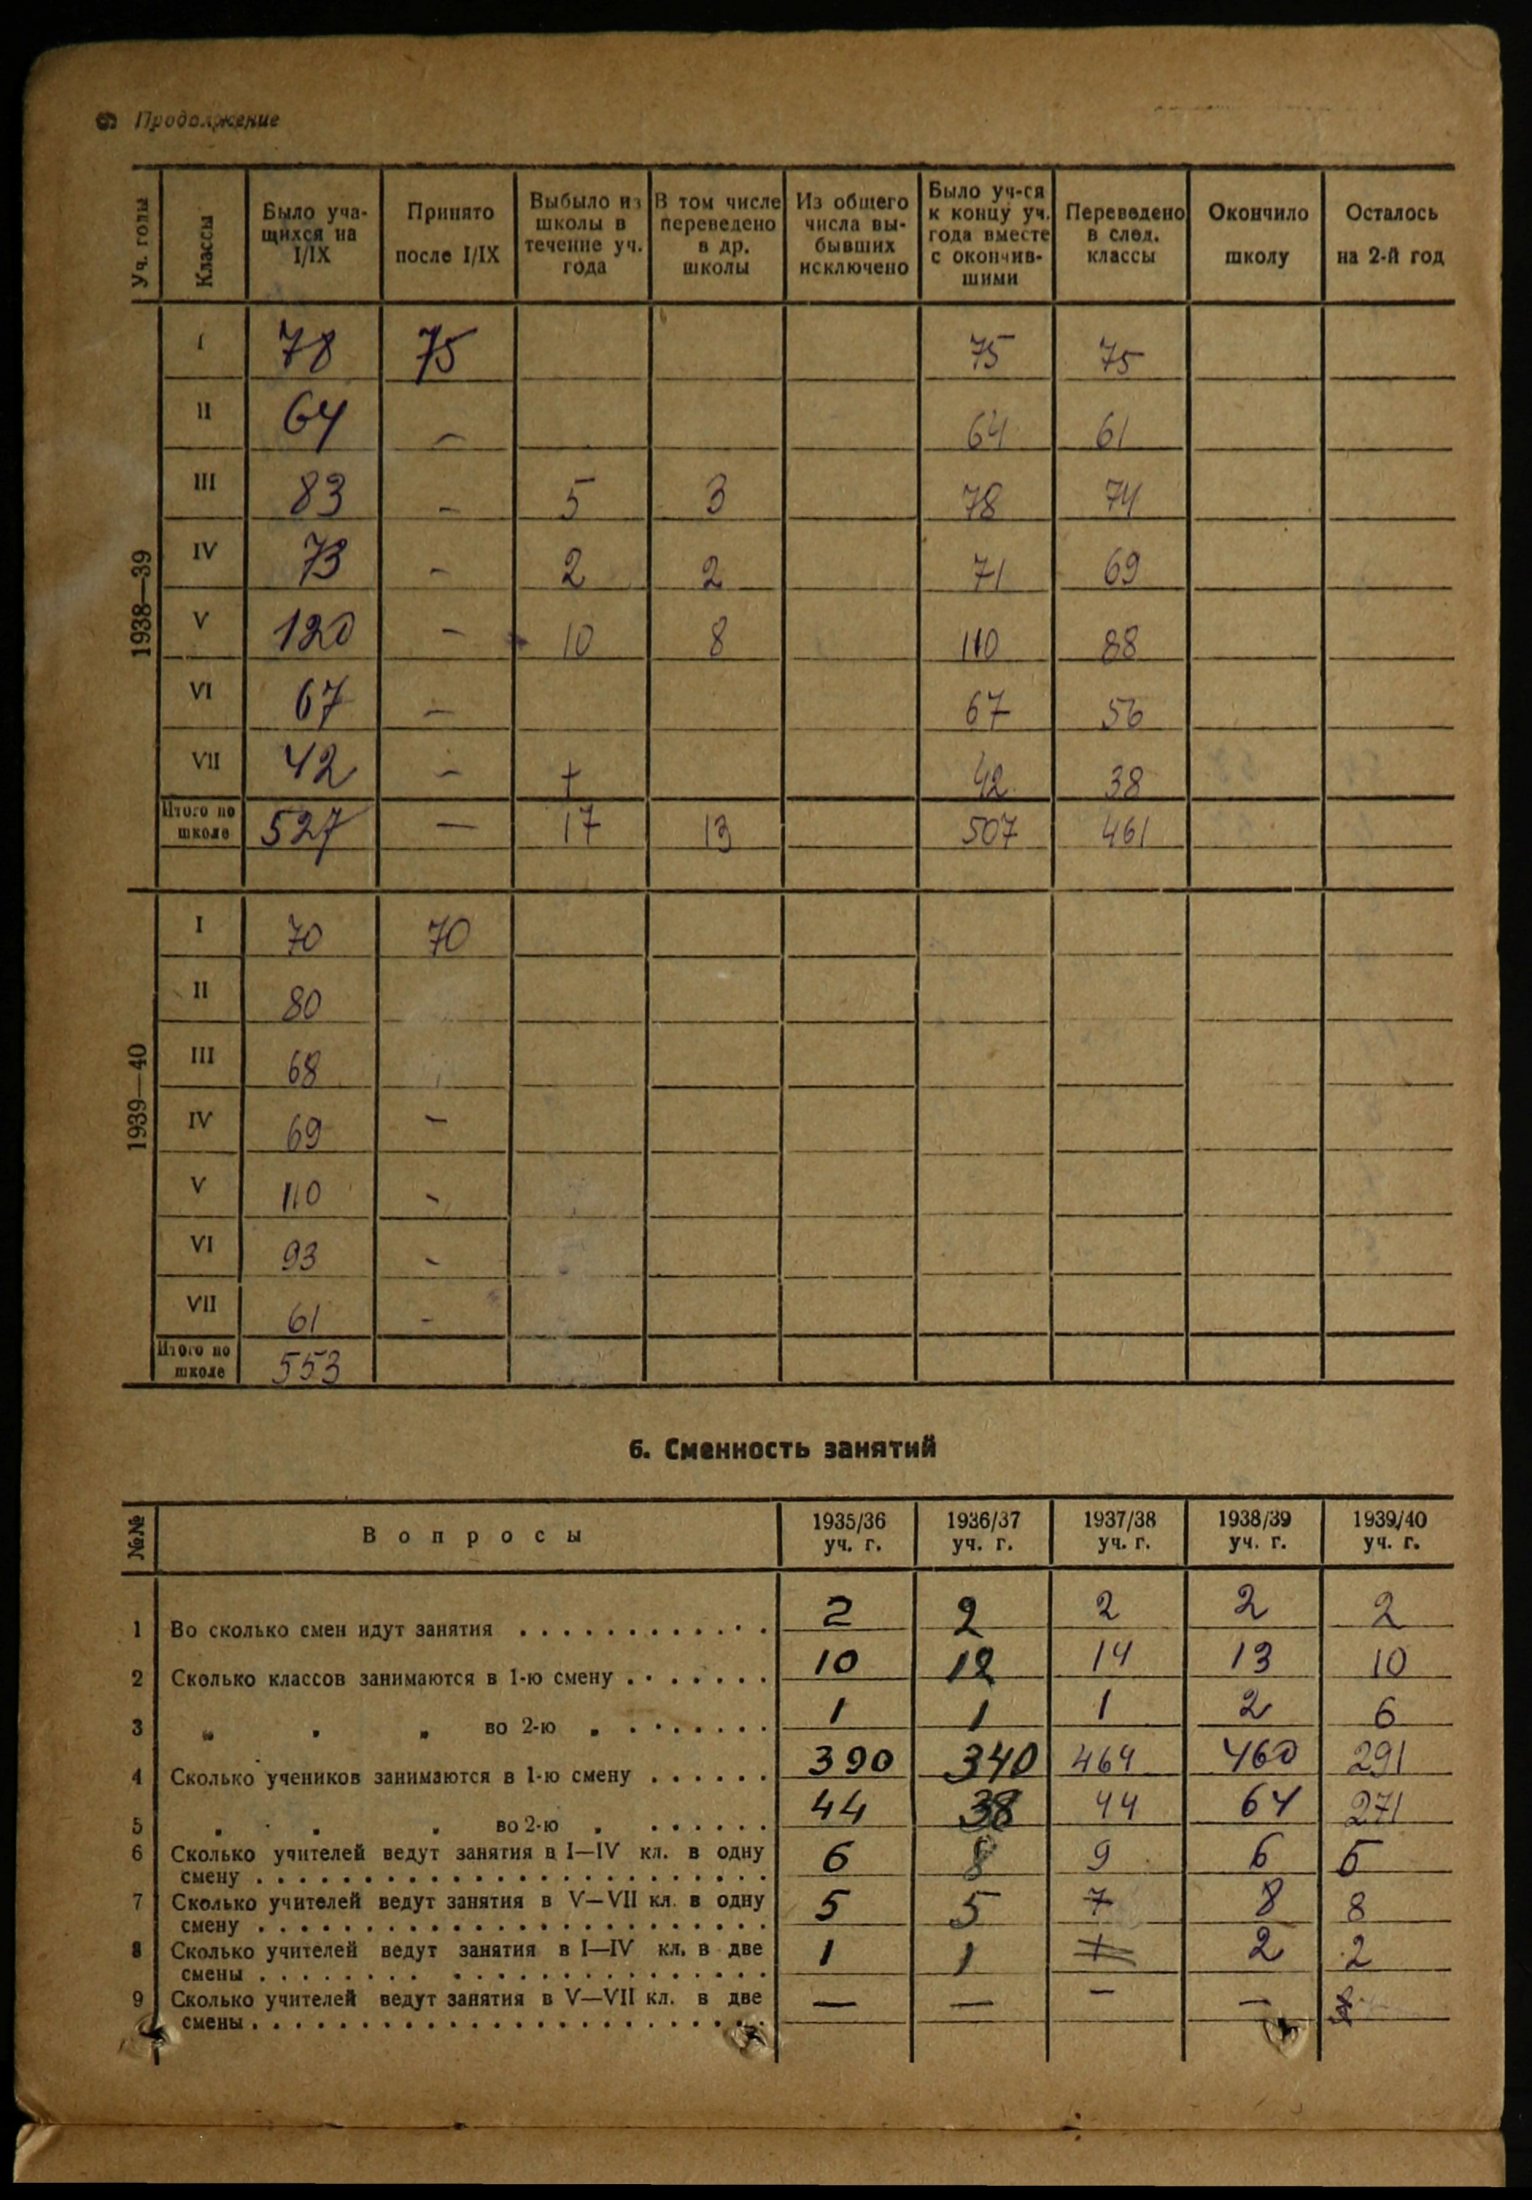 6 Продолжение
Уч. годы | Классы | Было учащихся на I/IX | Принято после I/IX | Выбыло из школы в течение уч. года | В том числе переведено в др. школы | Из общего числа выбывших исключено | Было уч-ся к концу уч. года вместе с окончившими | Переведено в след. классы | Окончило школу | Осталось на 2-й год
1938—39
I | 78 | 75 | | | | 75 | 75
II | 64 | — | | | | 64 | 61
III | 83 | — | 5 | 3 | | 78 | 74
IV | 73 | — | 2 | 2 | | 71 | 69
V | 120 | — | 10 | 8 | | 110 | 88
VI | 67 | — | | | | 67 | 56
VII | 42 | — | + | | | 42 | 38
Итого по школе | 527 | — | 17 | 13 | | 507 | 461
1939—40
I | 70 | 70
II | 80
III | 68
IV | 69 | —
V | 110 | —
VI | 93 | —
VII | 61 | —
Итого по школе | 553
6. Сменность занятий
№№ | Вопросы | 1935/36 уч. г. | 1936/37 уч. г. | 1937/38 уч. г. | 1938/39 уч. г. | 1939/40 уч. г.
1 Во сколько смен идут занятия | 2 | 2 | 2 | 2 | 2
2 Сколько классов занимаются в 1-ю смену | 10 | 12 | 14 | 13 | 10
3 „ „ „ во 2-ю „ | 1 | 1 | 1 | 2 | 6
4 Сколько учеников занимаются в 1-ю смену | 390 | 340 | 464 | 460 | 291
5 „ „ „ во 2-ю „ | 44 | 38 | 44 | 64 | 271
6 Сколько учителей ведут занятия в I—IV кл. в одну
смену | 6 | 8 | 9 | 6 | 5
7 Сколько учителей ведут занятия в V—VII кл. в одну
смену | 5 | 5 | 7 | 8 | 8
8 Сколько учителей ведут занятия в I—IV кл. в две
смены | 1 | 1 | 1 | 2 | 2
9 Сколько учителей ведут занятия в V—VII кл. в две
смены | — | — | — | —